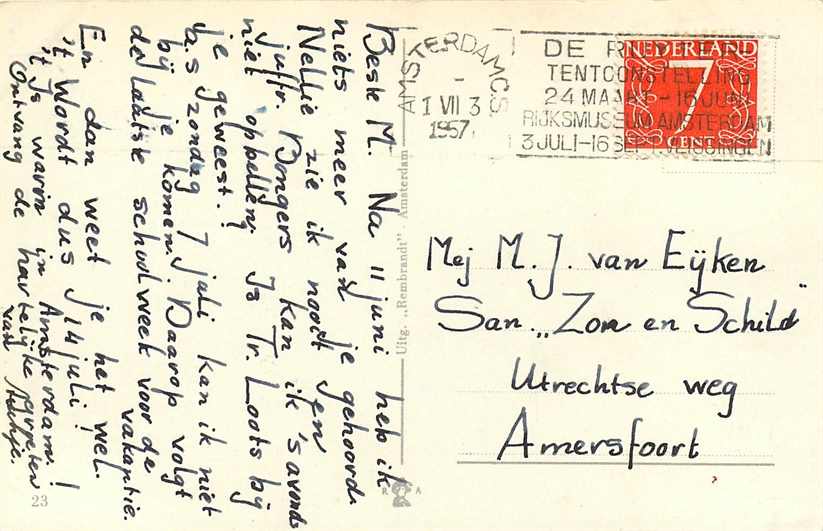 Beste M. Na 11 juni heb ik
niets meer van je gehoord.
Nellie zie ik nooit en
juffr. Bongers kan ik 's avonds
niet opbellen. Is Tr. Loots bij
je geweest?
a.s. zondag 7 juli kan ik niet
bij je komen. Daarop volgt
de laatste schoolweek voor de
vakantie.
En dan weet je het wel.
't Wordt dus 14 juli!
't Is warm in Amsterdam!
Ontvang de hartelijke groeten
van
23
Uitg. „Rembrandt" - Amsterdam
R A
AMSTERDAM C.S
1 VII 3
1957
DE
TENTOONSTELLING
24 MAART - 16 JUNI
RIJKSMUSEUM AMSTERDAM
3 JULI - 16 SEPT
NEDERLAND
7
CENT
Mej M. J. van Eijken
San. „Zon en Schild"
Utrechtse weg
Amersfoort